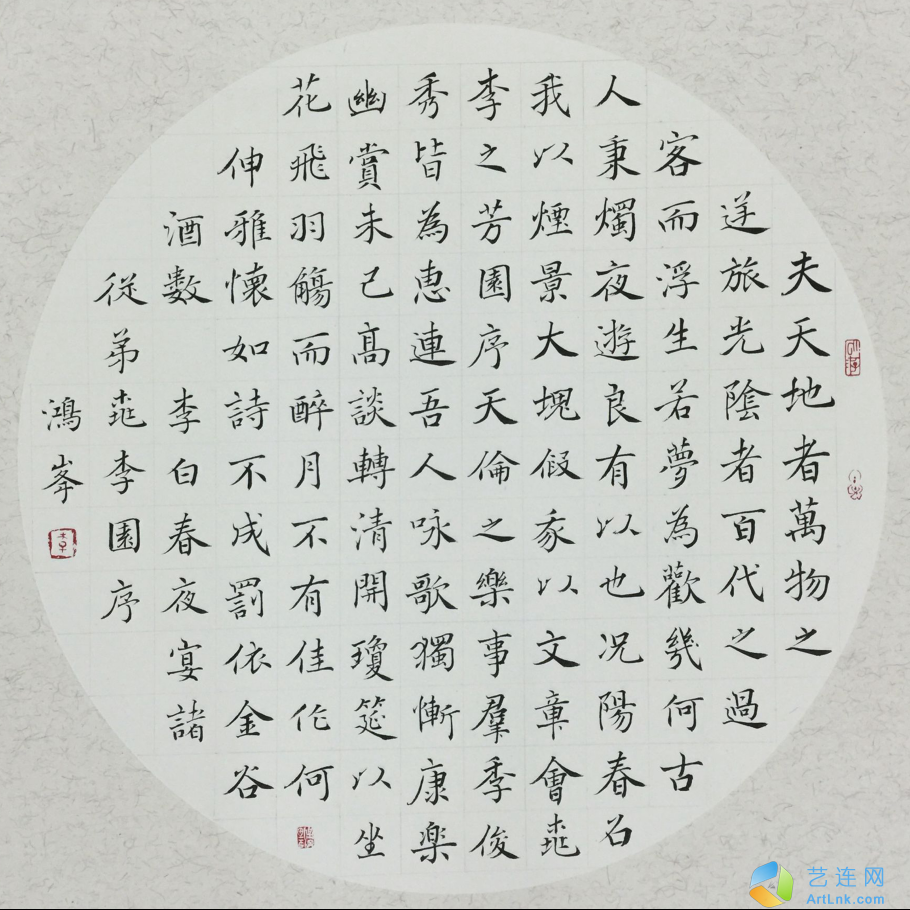 夫天地者萬物之
逆旅光陰者百代之過
客而浮生若夢為歡幾何古
人秉燭夜遊良有以也况陽春召
我以煙景大塊假我以文章會桃
李之芳園序天倫之樂事羣季俊
秀皆為惠連吾人咏歌獨慚康樂
幽賞未已高談轉清開瓊筵以坐
花飛羽觴而醉月不有佳作何
伸雅懷如詩不成罰依金谷
酒數 李白春夜宴諸
從弟桃李園序
鴻峯
李
艺连网
ArtLnk.com